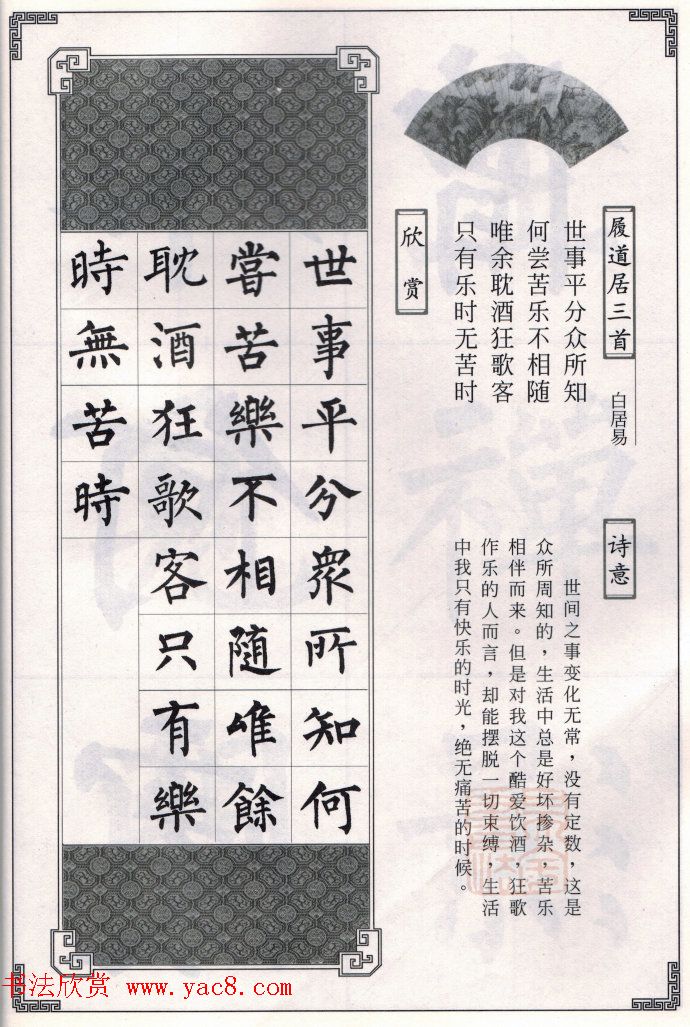 履道居三首
白居易
世事平分众所知
何尝苦乐不相随
唯余耽酒狂歌客
只有乐时无苦时
欣赏
诗意
世间之事变化无常，没有定数，这是
众所周知的，生活中总是好坏掺杂，苦乐
相伴而来。但是对我这个酷爱饮酒，狂歌
作乐的人而言，却能摆脱一切束缚，生活
中我只有快乐的时光，绝无痛苦的时候。
世事平分眾所知何
嘗苦樂不相隨唯餘
耽酒狂歌客只有樂
時無苦時
书法欣赏 www.yac8.com